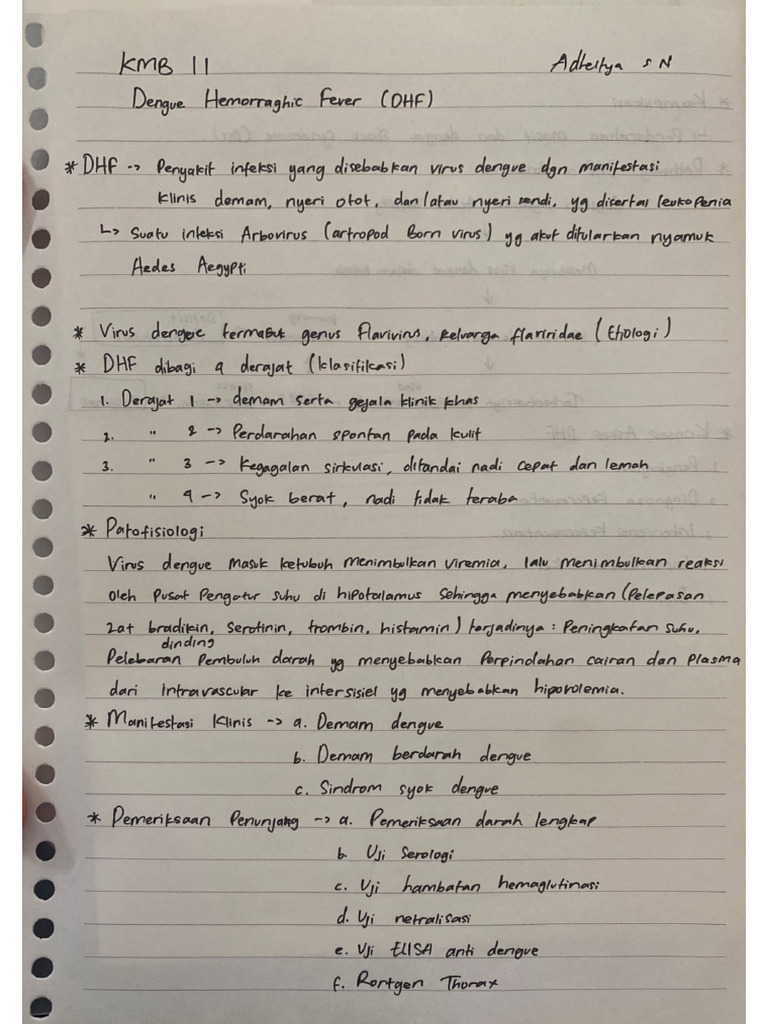 KMB II
Adheitya S N
Dengue Hemorraghic Fever (DHF)
* DHF -> Penyakit infeksi yang disebabkan virus dengue dgn manifestasi
klinis demam, nyeri otot, dan/atau nyeri sendi, yg disertai leukopenia
↳ Suatu infeksi Arbovirus (artropod Born virus) yg akut ditularkan nyamuk
Aedes Aegypti
* Virus dengue termasuk genus Flavivirus, keluarga flaviridae (Etiologi)
* DHF dibagi 4 derajat (klasifikasi)
1. Derajat 1 -> demam serta gejala klinik khas
2. " 2 -> Perdarahan spontan pada kulit
3. " 3 -> Kegagalan sirkulasi, ditandai nadi cepat dan lemah
" 4 -> Syok berat, nadi tidak teraba
* Patofisiologi
Virus dengue masuk ketubuh menimbulkan viremia, lalu menimbulkan reaksi
oleh pusat pengatur suhu di hipotalamus sehingga menyebabkan (pelepasan
zat bradikin, serotinin, trombin, histamin) terjadinya : Peningkatan suhu,
dinding
Pelebaran pembuluh darah yg menyebabkan perpindahan cairan dan plasma
dari intravascular ke intersisiel yg menyebabkan hipovolemia.
* Manifestasi klinis -> a. Demam dengue
b. Demam berdarah dengue
c. Sindrom syok dengue
* Pemeriksaan Penunjang -> a. Pemeriksaan darah lengkap
b. Uji Serologi
c. Uji hambatan hemaglutinasi
d. Uji netralisasi
e. Uji ELISA anti dengue
f. Rontgen Thorax